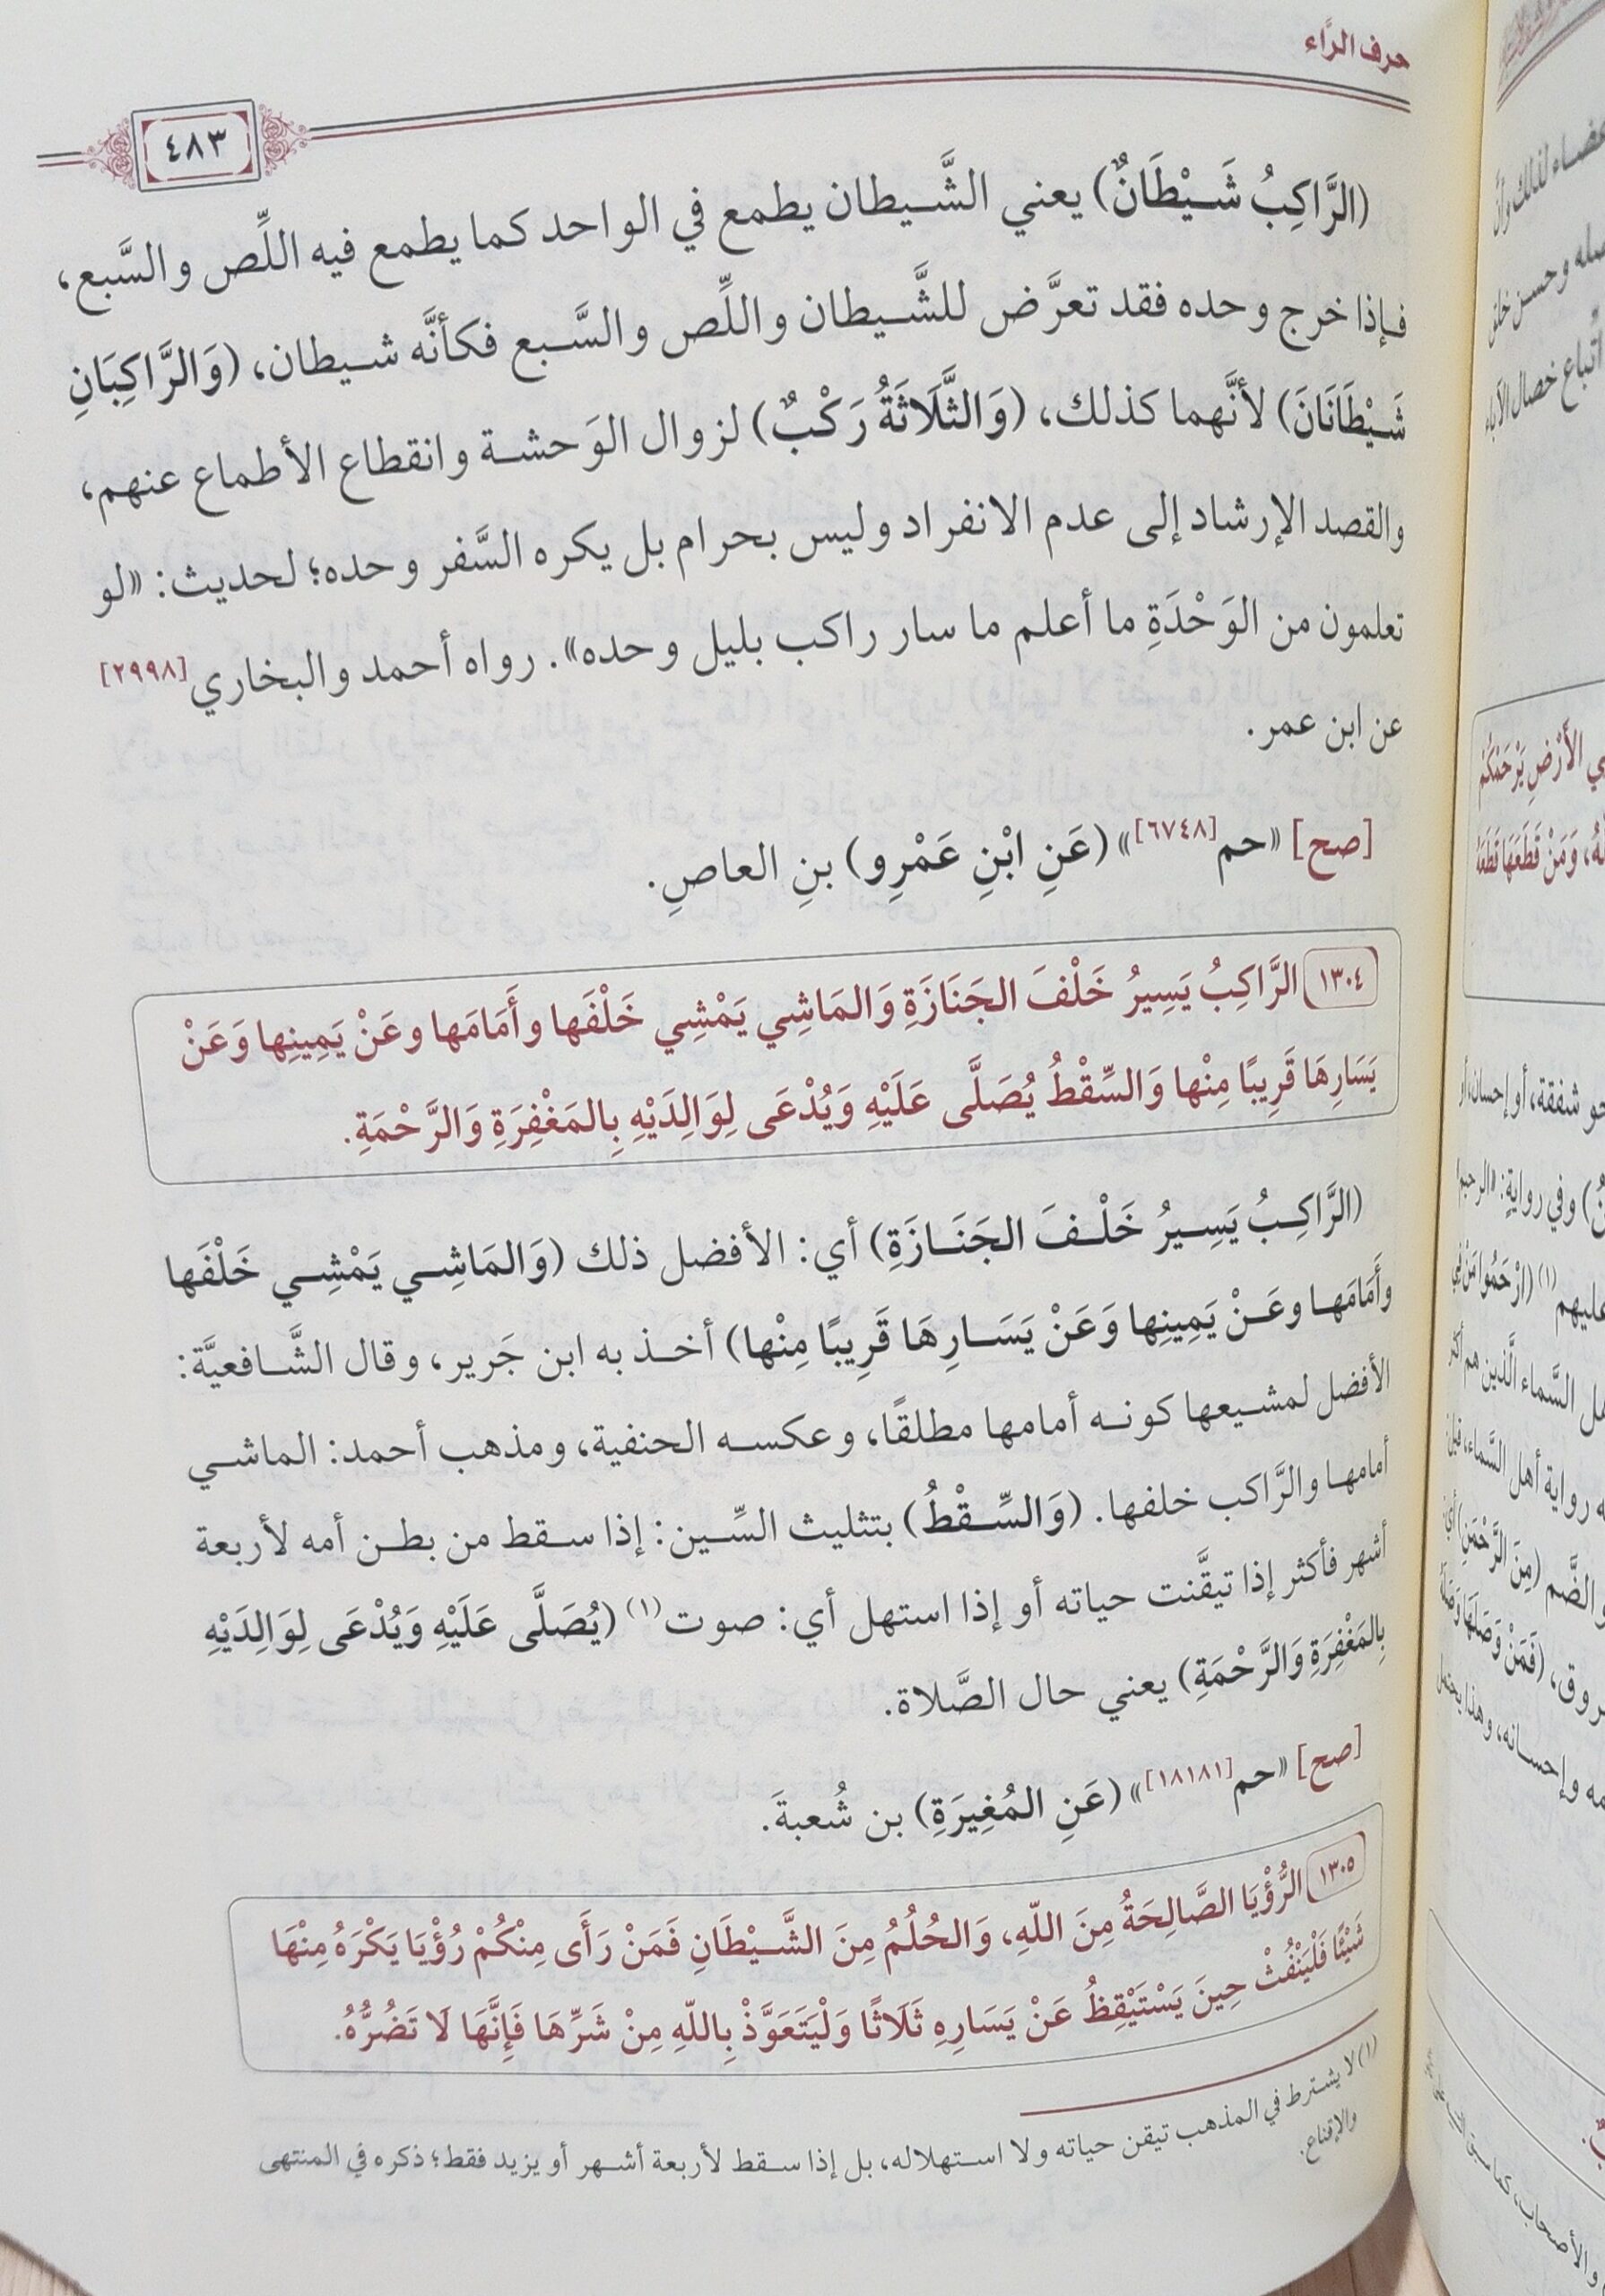 حرف الرَّاء
٤٨٣
(الرَّاكِبُ شَيْطَانٌ) يعني الشَّيطان يطمع في الواحد كما يطمع فيه اللِّص والسَّبع،
فإذا خرج وحده فقد تعرَّض للشَّيطان واللِّص والسَّبع فكأنَّه شيطان، (وَالرَّاكِبَانِ
شَيْطَانَانَ) لأنَّهما كذلك، (وَالثَّلَاثَةُ رَكْبٌ) لزوال الوَحشة وانقطاع الأطماع عنهم،
والقصد الإرشاد إلى عدم الانفراد وليس بحرام بل يكره السَّفر وحده؛ لحديث: «لو
تعلمون من الوَحْدَةِ ما أعلم ما سار راكب بليل وحده». رواه أحمد والبخاري [٢٩٩٨]
عن ابن عمر.
[صح] «حم[٦٧٤٨]» (عَنِ ابْنِ عَمْرِو) بنِ العاصِ.
١٣٠٤ الرَّاكِبُ يَسِيرُ خَلْفَ الجَنَازَةِ وَالمَاشِي يَمْشِي خَلْفَها وأَمَامَها وعَنْ يَمِينِها وَعَنْ
يَسَارِهَا قَرِيبًا مِنْها وَالسِّقْطُ يُصَلَّى عَلَيْهِ وَيُدْعَى لِوَالِدَيْهِ بِالمَغْفِرَةِ وَالرَّحْمَةِ.
(الرَّاكِبُ يَسِيرُ خَلْفَ الجَنَازَةِ) أي: الأفضل ذلك (وَالمَاشِي يَمْشِي خَلْفَها
وأَمَامَها وعَنْ يَمِينِها وَعَنْ يَسَارِهَا قَرِيبًا مِنْها) أخذ به ابن جَرير، وقال الشَّافعيَّة:
الأفضل لمشيعها كونه أمامها مطلقًا، وعكسه الحنفية، ومذهب أحمد: الماشي
أمامها والرَّاكب خلفها. (وَالسِّقْطُ) بتثليث السِّين: إذا سقط من بطن أمه لأربعة
أشهر فأكثر إذا تيقَّنت حياته أو إذا استهل أي: صوت(١) (يُصَلَّى عَلَيْهِ وَيُدْعَى لِوَالِدَيْهِ
بِالمَغْفِرَةِ وَالرَّحْمَةِ) يعني حال الصَّلاة.
[صح] «حم[١٨١٨١]» (عَنِ المُغِيرَةِ) بن شُعبةَ.
١٣٠٥ الرُّؤْيَا الصَّالِحَةُ مِنَ اللّهِ، وَالحُلُمُ مِنَ الشَّيْطَانِ فَمَنْ رَأَى مِنْكُمْ رُؤْيَا يَكْرَهُ مِنْهَا
شَيْئًا فَلْيَنْفُثْ حِينَ يَسْتَيْقِظُ عَنْ يَسَارِهِ ثَلَاثًا وَلْيَتَعَوَّذْ بِاللّهِ مِنْ شَرِّهَا فَإِنَّهَا لَا تَضُرُّهُ.
(١) لا يشترط في المذهب تيقن حياته ولا استهلاله، بل إذا سقط لأربعة أشهر أو يزيد فقط؛ ذكره في المنتهى
والإقناع.